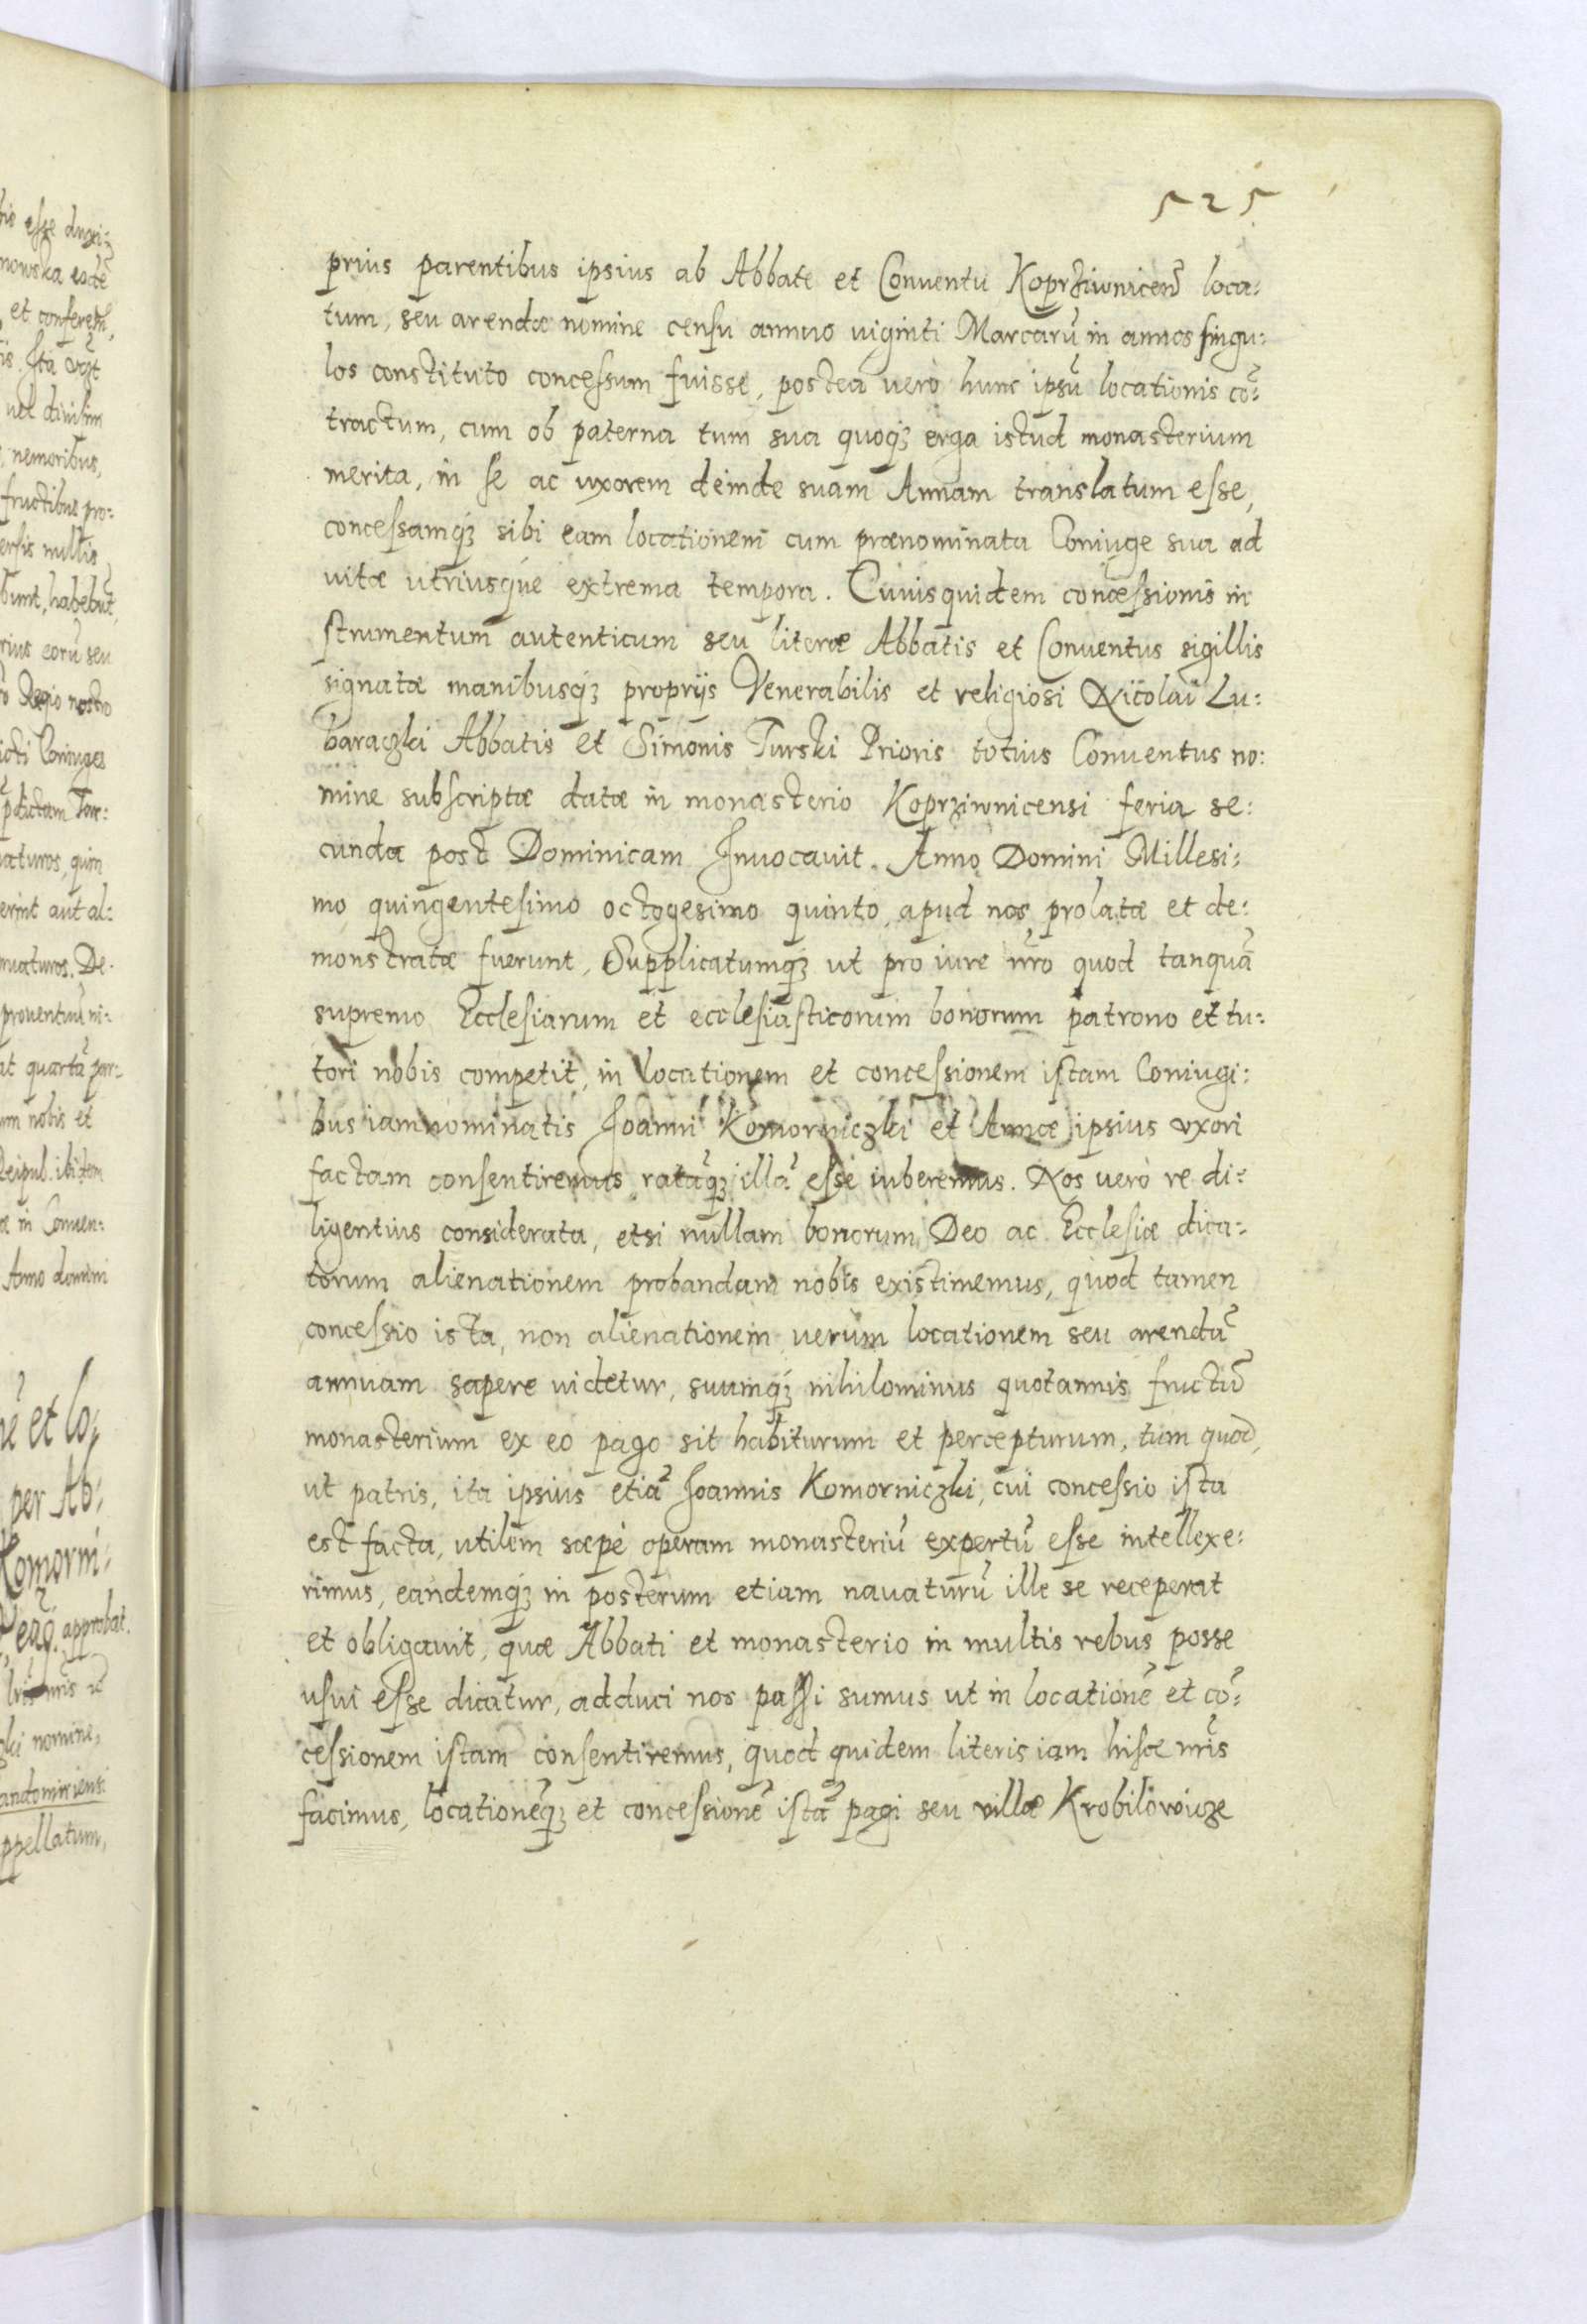 525
prius parentibus ipsius ab Abbate et Conuentu Koprziwnicen̄ loca:
tum, seu arendæ nomine censu annuo uiginti Marcarū in annos singu:
los constituto concessum fuisse, postea uerò hunc ipsū locationis cō:
tractum, cum ob paterna tum sua quoqꝫ erga istud monasterium
merita, in se ac uxorem deinde suam Annam translatum esse,
concessamqꝫ sibi eam locationem cum prænominata Coniuge sua ad
uitæ utriusque extrema tempora. Cuiusquidem concessionis in
strumentum autenticum seu literæ Abbatis et Conuentus sigillis
signatæ manibusqꝫ proprijs Venerabilis et religiosi Nicolai Lu:
baraczki Abbatis et Simonis Turski Prioris totius Conuentus no:
mine subscriptæ datæ in monasterio Koprziwnicensi feria se:
cunda post Dominicam Inuocauit. Anno Domini Millesi:
mo quingentesimo octogesimo quinto, apud nos prolatæ et de:
monstratæ fuerunt, Supplicatumqꝫ ut pro iure nr̄o quod tanquā
supremo Ecclesiarum et ecclesiasticorum bonorum patrono et tu:
tori nobis competit, in locationem et concessionem istam Coniugi:
bus iam nominatis Joanni Komorniczki et Annæ ipsius uxori
factam consentiremus, ratāqꝫ illā esse iuberemus. Nos uerò re di:
ligentius considerata, etsi nullam bonorum Deo ac Ecclesiæ dica:
torum alienationem probandam nobis existimemus, quod tamen
concessio ista, non alienationem uerum locationem seu arendā
annuam sapere uidetur, suumqꝫ nihilominus quotannis fructū
monasterium ex eo pago sit habiturum et percepturum, tum quod,
ut patris, ita ipsius etiā Joannis Komorniczki, cui concessio ista
est facta, utilem sæpè operam monasteriū expertū esse intellexe:
rimus, eandemqꝫ in posterum etiam nauaturū ille se receperat
et obligauit, quæ Abbati et monasterio in multis rebus posse
usui esse dicatur, adduci nos passi sumus ut in locationē et cō:
cessionem istam consentiremus, quod quidem literis iam hisce nr̄is
facimus, locationēqꝫ et concessionē istā pagi seu villæ Krobilowicze